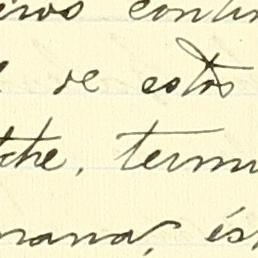 eros contin
de estos
che, termi
mana, és